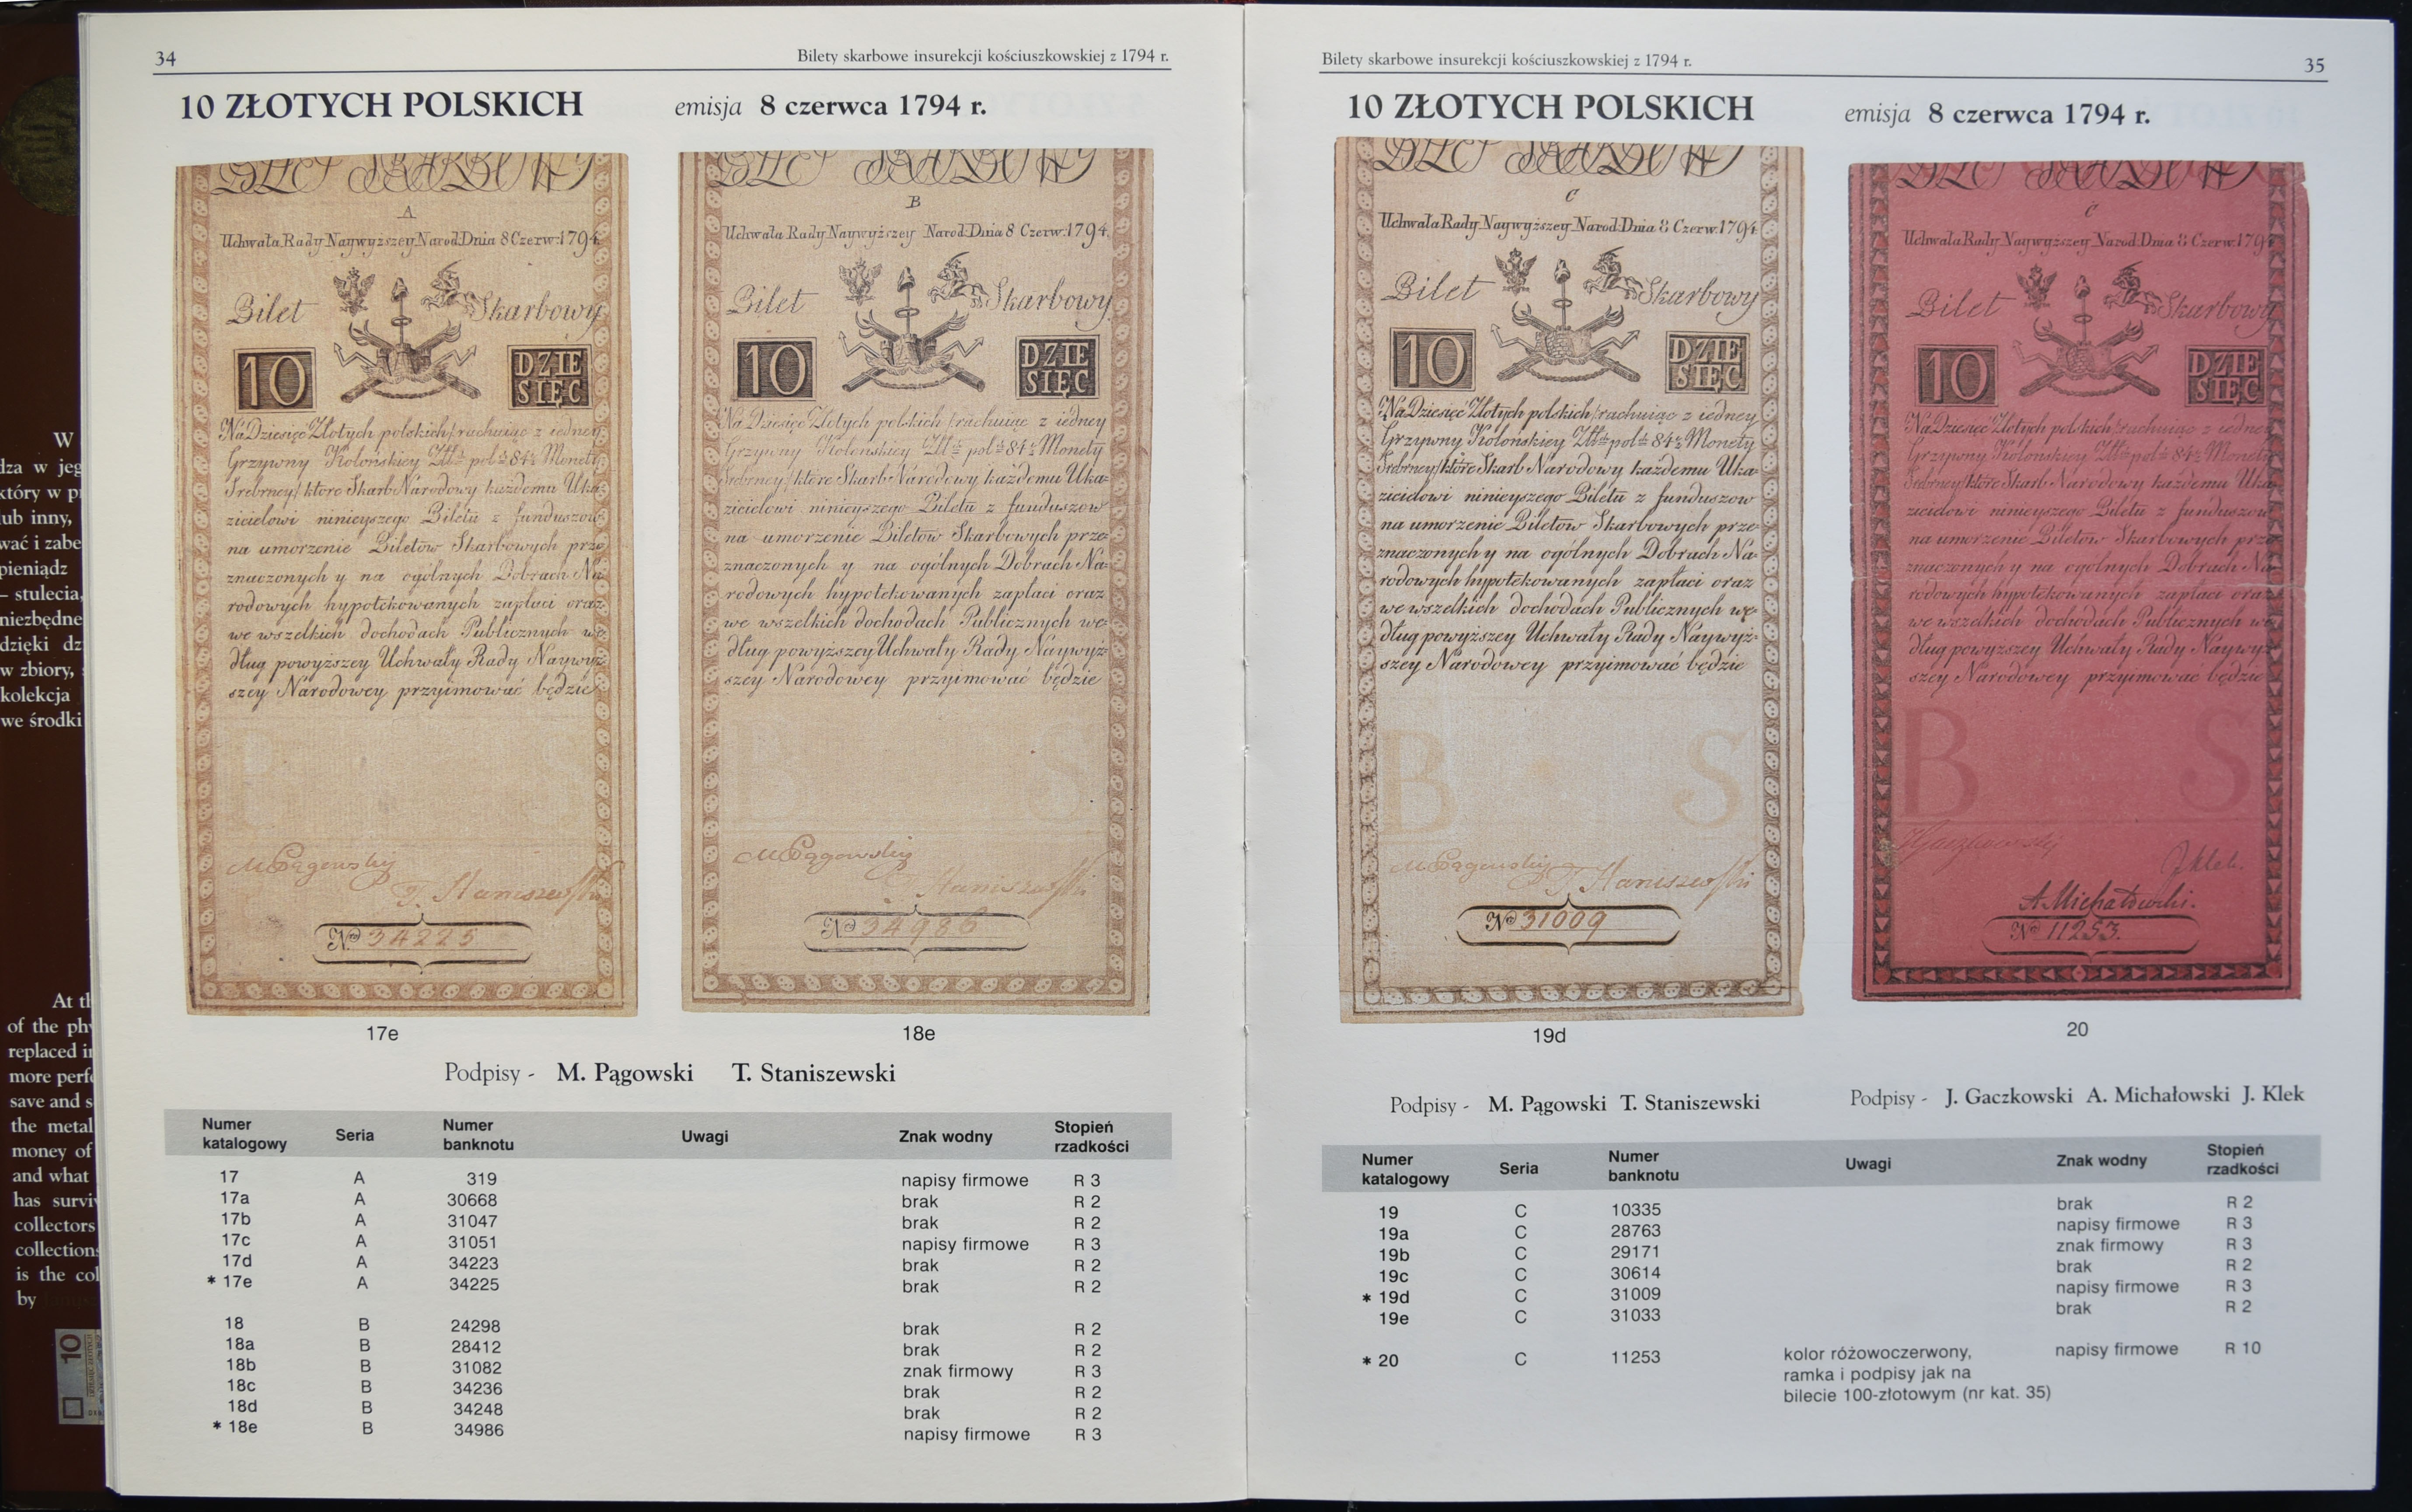 W
dza w jeg
który w p
lub inny,
wać i zabe
pieniądz
– stulecia,
niezbędne
dzięki dz
w zbiory,
kolekcja
we środki
At th
of the phy
replaced in
more perfe
save and s
the metal
money of
and what
has survi
collectors
collections
is the col
by
10
34
Bilety skarbowe insurekcji kościuszkowskiej z 1794 r.
10 ZŁOTYCH POLSKICH emisja 8 czerwca 1794 r.
BILET SKARBOWY
A
Uchwała Rady Naywyzszey Narod: Dnia 8 Czerw: 1794.
Bilet Skarbowy
10 DZIE
SIĘC
Na Dziesięć Złotych polskich/rachuiąc z iedney
Grzywny Kolońskiey Złł: pol: 84½ Monety
Srebrney/które Skarb Narodowy każdemu Uka=
zicielowi ninieyszego Biletu z funduszow
na umorzenie Biletow Skarbowych prze
znaczonych y na ogólnych Dobrach Na
rodowych hypotekowanych zapłaci oraz
we wszelkich dochodach Publicznych we
dług powyższey Uchwały Rady Naywyż
szey Narodowey przyimować będzie
M Pągowski
T. Staniszewski
No 34225
17e
BILET SKARBOWY
B
Uchwała Rady Naywyższey Narod: Dnia 8 Czerw: 1794.
Bilet Skarbowy
10 DZIE
SIĘC
Na Dziesięć Złotych polskich/rachuiąc z iedney
Grzywny Kolońskiey Złł: pol: 84½ Monety
Srebrney/które Skarb Narodowy każdemu Uka=
zicielowi ninieyszego Biletu z funduszow
na umorzenie Biletow Skarbowych prze=
znaczonych y na ogólnych Dobrach Na=
rodowych hypotekowanych zapłaci oraz
we wszelkich dochodach Publicznych we=
dług powyższey Uchwały Rady Naywyż=
szey Narodowey przyimować będzie
B S
M Pągowski
T. Staniszewski
No 34986
18e
Podpisy - M. Pągowski T. Staniszewski
Numer katalogowy Seria Numer banknotu Uwagi Znak wodny Stopień rzadkości
17 A 319 napisy firmowe R 3
17a A 30668 brak R 2
17b A 31047 brak R 2
17c A 31051 napisy firmowe R 3
17d A 34223 brak R 2
* 17e A 34225 brak R 2
18 B 24298 brak R 2
18a B 28412 brak R 2
18b B 31082 znak firmowy R 3
18c B 34236 brak R 2
18d B 34248 brak R 2
* 18e B 34986 napisy firmowe R 3
Bilety skarbowe insurekcji kościuszkowskiej z 1794 r.
35
10 ZŁOTYCH POLSKICH emisja 8 czerwca 1794 r.
BILET SKARBOWY
C
Uchwała Rady Naywyższey Narod: Dnia 8 Czerw: 1794
Bilet Skarbowy
10 DZIE
SIĘC
Na Dziesięć Złotych polskich/rachuiąc z iedney
Grzywny Kolońskiey Złł: pol: 84½ Monety
Srebrney/które Skarb Narodowy każdemu Uka=
zicielowi ninieyszego Biletu z funduszow
na umorzenie Biletow Skarbowych prze=
znaczonych y na ogólnych Dobrach Na=
rodowych hypotekowanych zapłaci oraz
we wszelkich dochodach Publicznych we=
dług powyższey Uchwały Rady Naywyż=
szey Narodowey przyimować będzie
B S
M Pągowski
T. Staniszewski
No 31009
19d
BILET SKARBOWY
C
Uchwała Rady Naywyższey Narod: Dnia 8 Czerw: 179
Bilet Skarbowy
10 DZIE
SIĘC
Na Dziesięć Złotych polskich/rachuiąc z iedney
Grzywny Kolońskiey Złł: pol: 84½ Monety
Srebrney/które Skarb Narodowy każdemu Uka
zicielowi ninieyszego Biletu z funduszow
na umorzenie Biletow Skarbowych prze
znaczonych y na ogólnych Dobrach Na
rodowych hypotekowanych zapłaci oraz
we wszelkich dochodach Publicznych we
dług powyższey Uchwały Rady Naywyż
szey Narodowey przyimować będzie
B S
J Gaczkowski
J Klek.
A. Michałowski.
No 11253.
20
Podpisy - M. Pągowski T. Staniszewski
Podpisy - J. Gaczkowski A. Michałowski J. Klek
Numer katalogowy Seria Numer banknotu Uwagi Znak wodny Stopień rzadkości
19 C 10335 brak R 2
19a C 28763 napisy firmowe R 3
19b C 29171 znak firmowy R 3
19c C 30614 brak R 2
* 19d C 31009 napisy firmowe R 3
19e C 31033 brak R 2
* 20 C 11253 kolor różowoczerwony, napisy firmowe R 10
ramka i podpisy jak na
bilecie 100-złotowym (nr kat. 35)